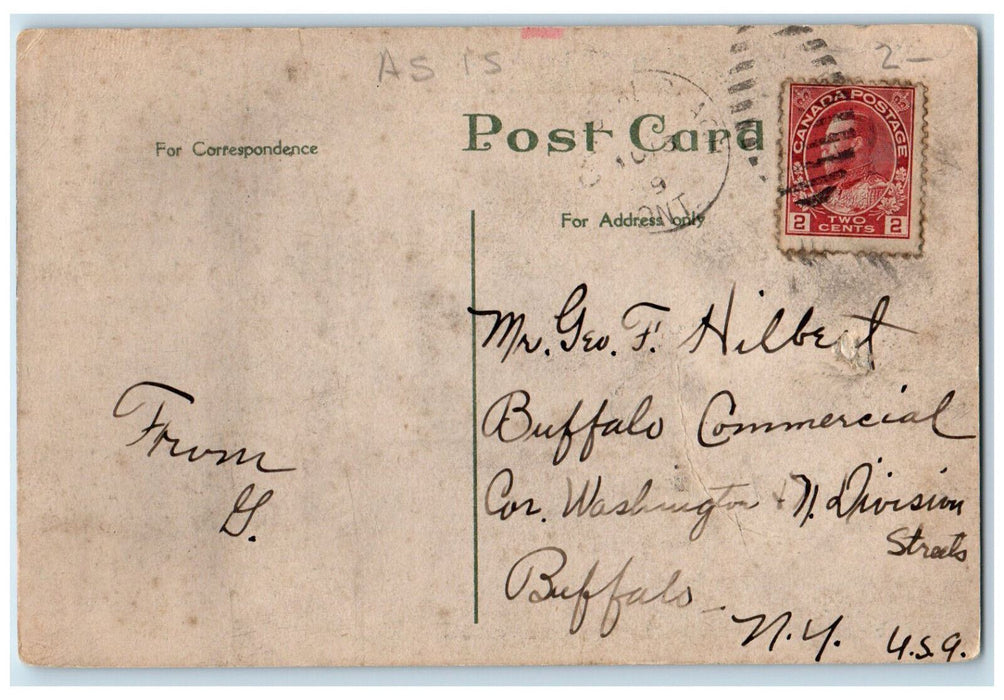 AS IS
2-
For Correspondence
Post Card
CANADA POSTAGE
2 TWO CENTS 2
9
ONT
For Address only
Mr. Geo. F. Hilbert
Buffalo Commercial
Cor. Washington & N. Division
Streets
Buffalo -
N.Y. U.S.A.
From
G.